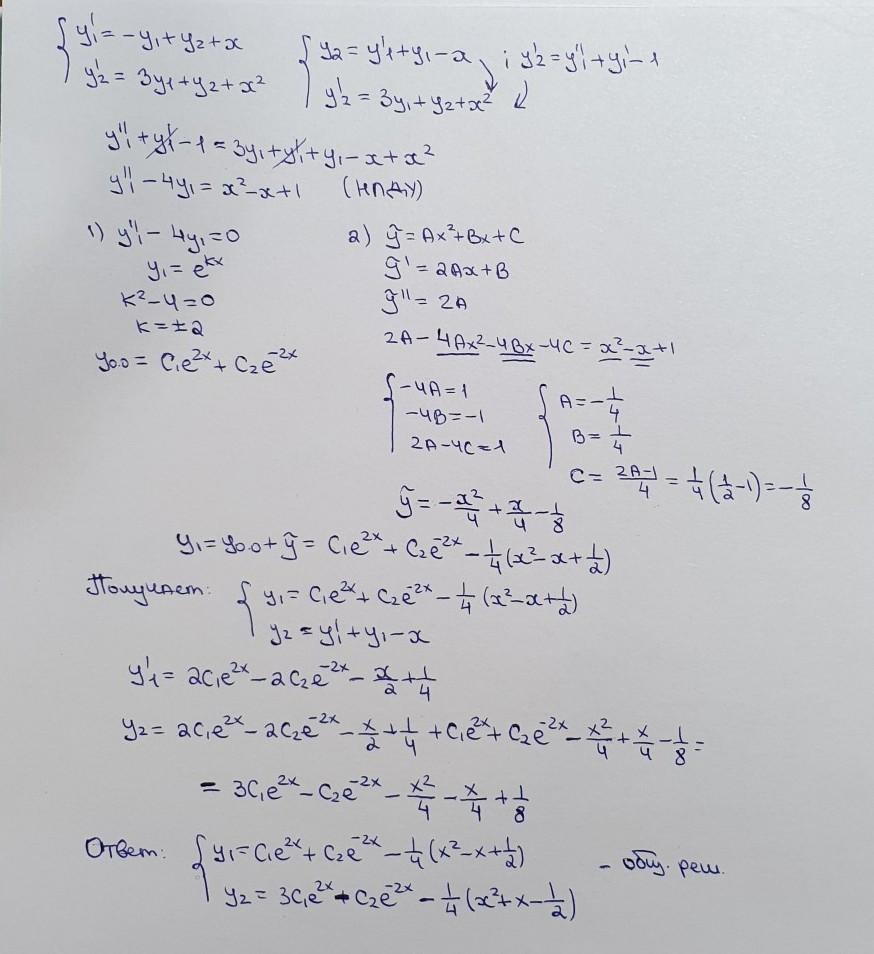 { y₁' = -y₁ + y₂ + x
y₂' = 3y₁ + y₂ + x²
{ y₂ = y₁' + y₁ - x ; y₂' = y₁'' + y₁' - 1
y₂' = 3y₁ + y₂ + x²
y₁'' + y₁' - 1 = 3y₁ + y₁' + y₁ - x + x²
y₁'' - 4y₁ = x² - x + 1 (НЛДУ)
1) y₁'' - 4y₁ = 0
y₁ = e^(kx)
k² - 4 = 0
k = ±2
y₀.₀ = C₁e^(2x) + C₂e^(-2x)
2) ỹ = Ax² + Bx + C
ỹ' = 2Ax + B
ỹ'' = 2A
2A - 4Ax² - 4Bx - 4C = x² - x + 1
{ -4A = 1
-4B = -1
2A - 4C = 1
{ A = -1/4
B = 1/4
C = (2A-1)/4 = 1/4(1/2 - 1) = -1/8
ỹ = -x²/4 + x/4 - 1/8
y₁ = y₀.₀ + ỹ = C₁e^(2x) + C₂e^(-2x) - 1/4(x² - x + 1/2)
Получаем: { y₁ = C₁e^(2x) + C₂e^(-2x) - 1/4(x² - x + 1/2)
y₂ = y₁' + y₁ - x
y₁' = 2C₁e^(2x) - 2C₂e^(-2x) - x/2 + 1/4
y₂ = 2C₁e^(2x) - 2C₂e^(-2x) - x/2 + 1/4 + C₁e^(2x) + C₂e^(-2x) - x²/4 + x/4 - 1/8 =
= 3C₁e^(2x) - C₂e^(-2x) - x²/4 - x/4 + 1/8
Ответ: { y₁ = C₁e^(2x) + C₂e^(-2x) - 1/4(x² - x + 1/2)
y₂ = 3C₁e^(2x) - C₂e^(-2x) - 1/4(x² + x - 1/2)
- общ. реш.